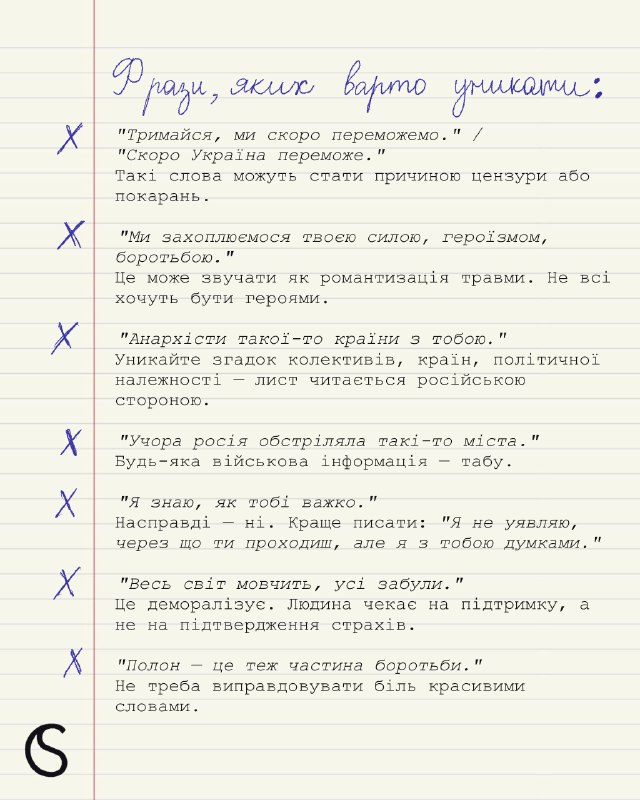 Фрази, яких варто уникати:
X
"Тримайся, ми скоро переможемо." /
"Скоро Україна переможе."
Такі слова можуть стати причиною цензури або
покарань.
X
"Ми захоплюємося твоєю силою, героїзмом,
боротьбою."
Це може звучати як романтизація травми. Не всі
хочуть бути героями.
X
"Анархісти такої-то країни з тобою."
Уникайте згадок колективів, країн, політичної
належності — лист читається російською
стороною.
X
"Учора росія обстріляла такі-то міста."
Будь-яка військова інформація — табу.
X
"Я знаю, як тобі важко."
Насправді — ні. Краще писати: "Я не уявляю,
через що ти проходиш, але я з тобою думками."
X
"Весь світ мовчить, усі забули."
Це деморалізує. Людина чекає на підтримку, а
не на підтвердження страхів.
X
"Полон — це теж частина боротьби."
Не треба виправдовувати біль красивими
словами.